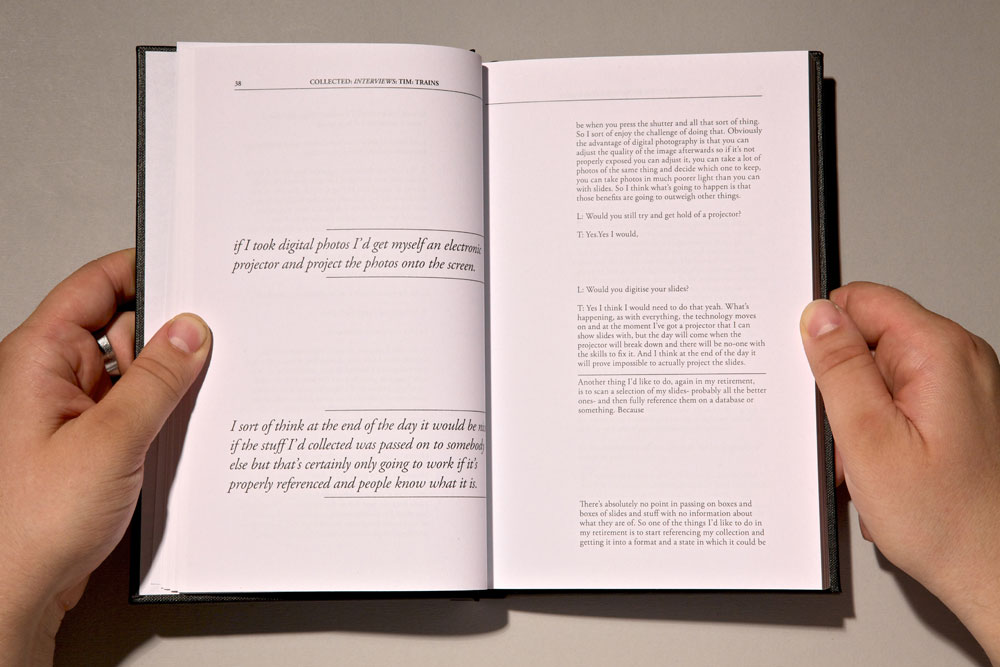 38
COLLECTED: INTERVIEWS: TIM: TRAINS
if I took digital photos I'd get myself an electronic
projector and project the photos onto the screen.
I sort of think at the end of the day it would be
if the stuff I'd collected was passed on to somebody
else but that's certainly only going to work if it's
properly referenced and people know what it is.
be when you press the shutter and all that sort of thing.
So I sort of enjoy the challenge of doing that. Obviously
the advantage of digital photography is that you can
adjust the quality of the image afterwards so if it's not
properly exposed you can adjust it, you can take a lot of
photos of the same thing and decide which one to keep,
you can take photos in much poorer light than you can
with slides. So I think what's going to happen is that
those benefits are going to outweigh other things.
L: Would you still try and get hold of a projector?
T: Yes.Yes I would,
L: Would you digitise your slides?
T: Yes I think I would need to do that yeah. What's
happening, as with everything, the technology moves
on and at the moment I've got a projector that I can
show slides with, but the day will come when the
projector will break down and there will be no-one with
the skills to fix it. And I think at the end of the day it
will prove impossible to actually project the slides.
Another thing I'd like to do, again in my retirement,
is to scan a selection of my slides- probably all the better
ones- and then fully reference them on a database or
something. Because
There's absolutely no point in passing on boxes and
boxes of slides and stuff with no information about
what they are of. So one of the things I'd like to do in
my retirement is to start referencing my collection and
getting it into a format and a state in which it could be